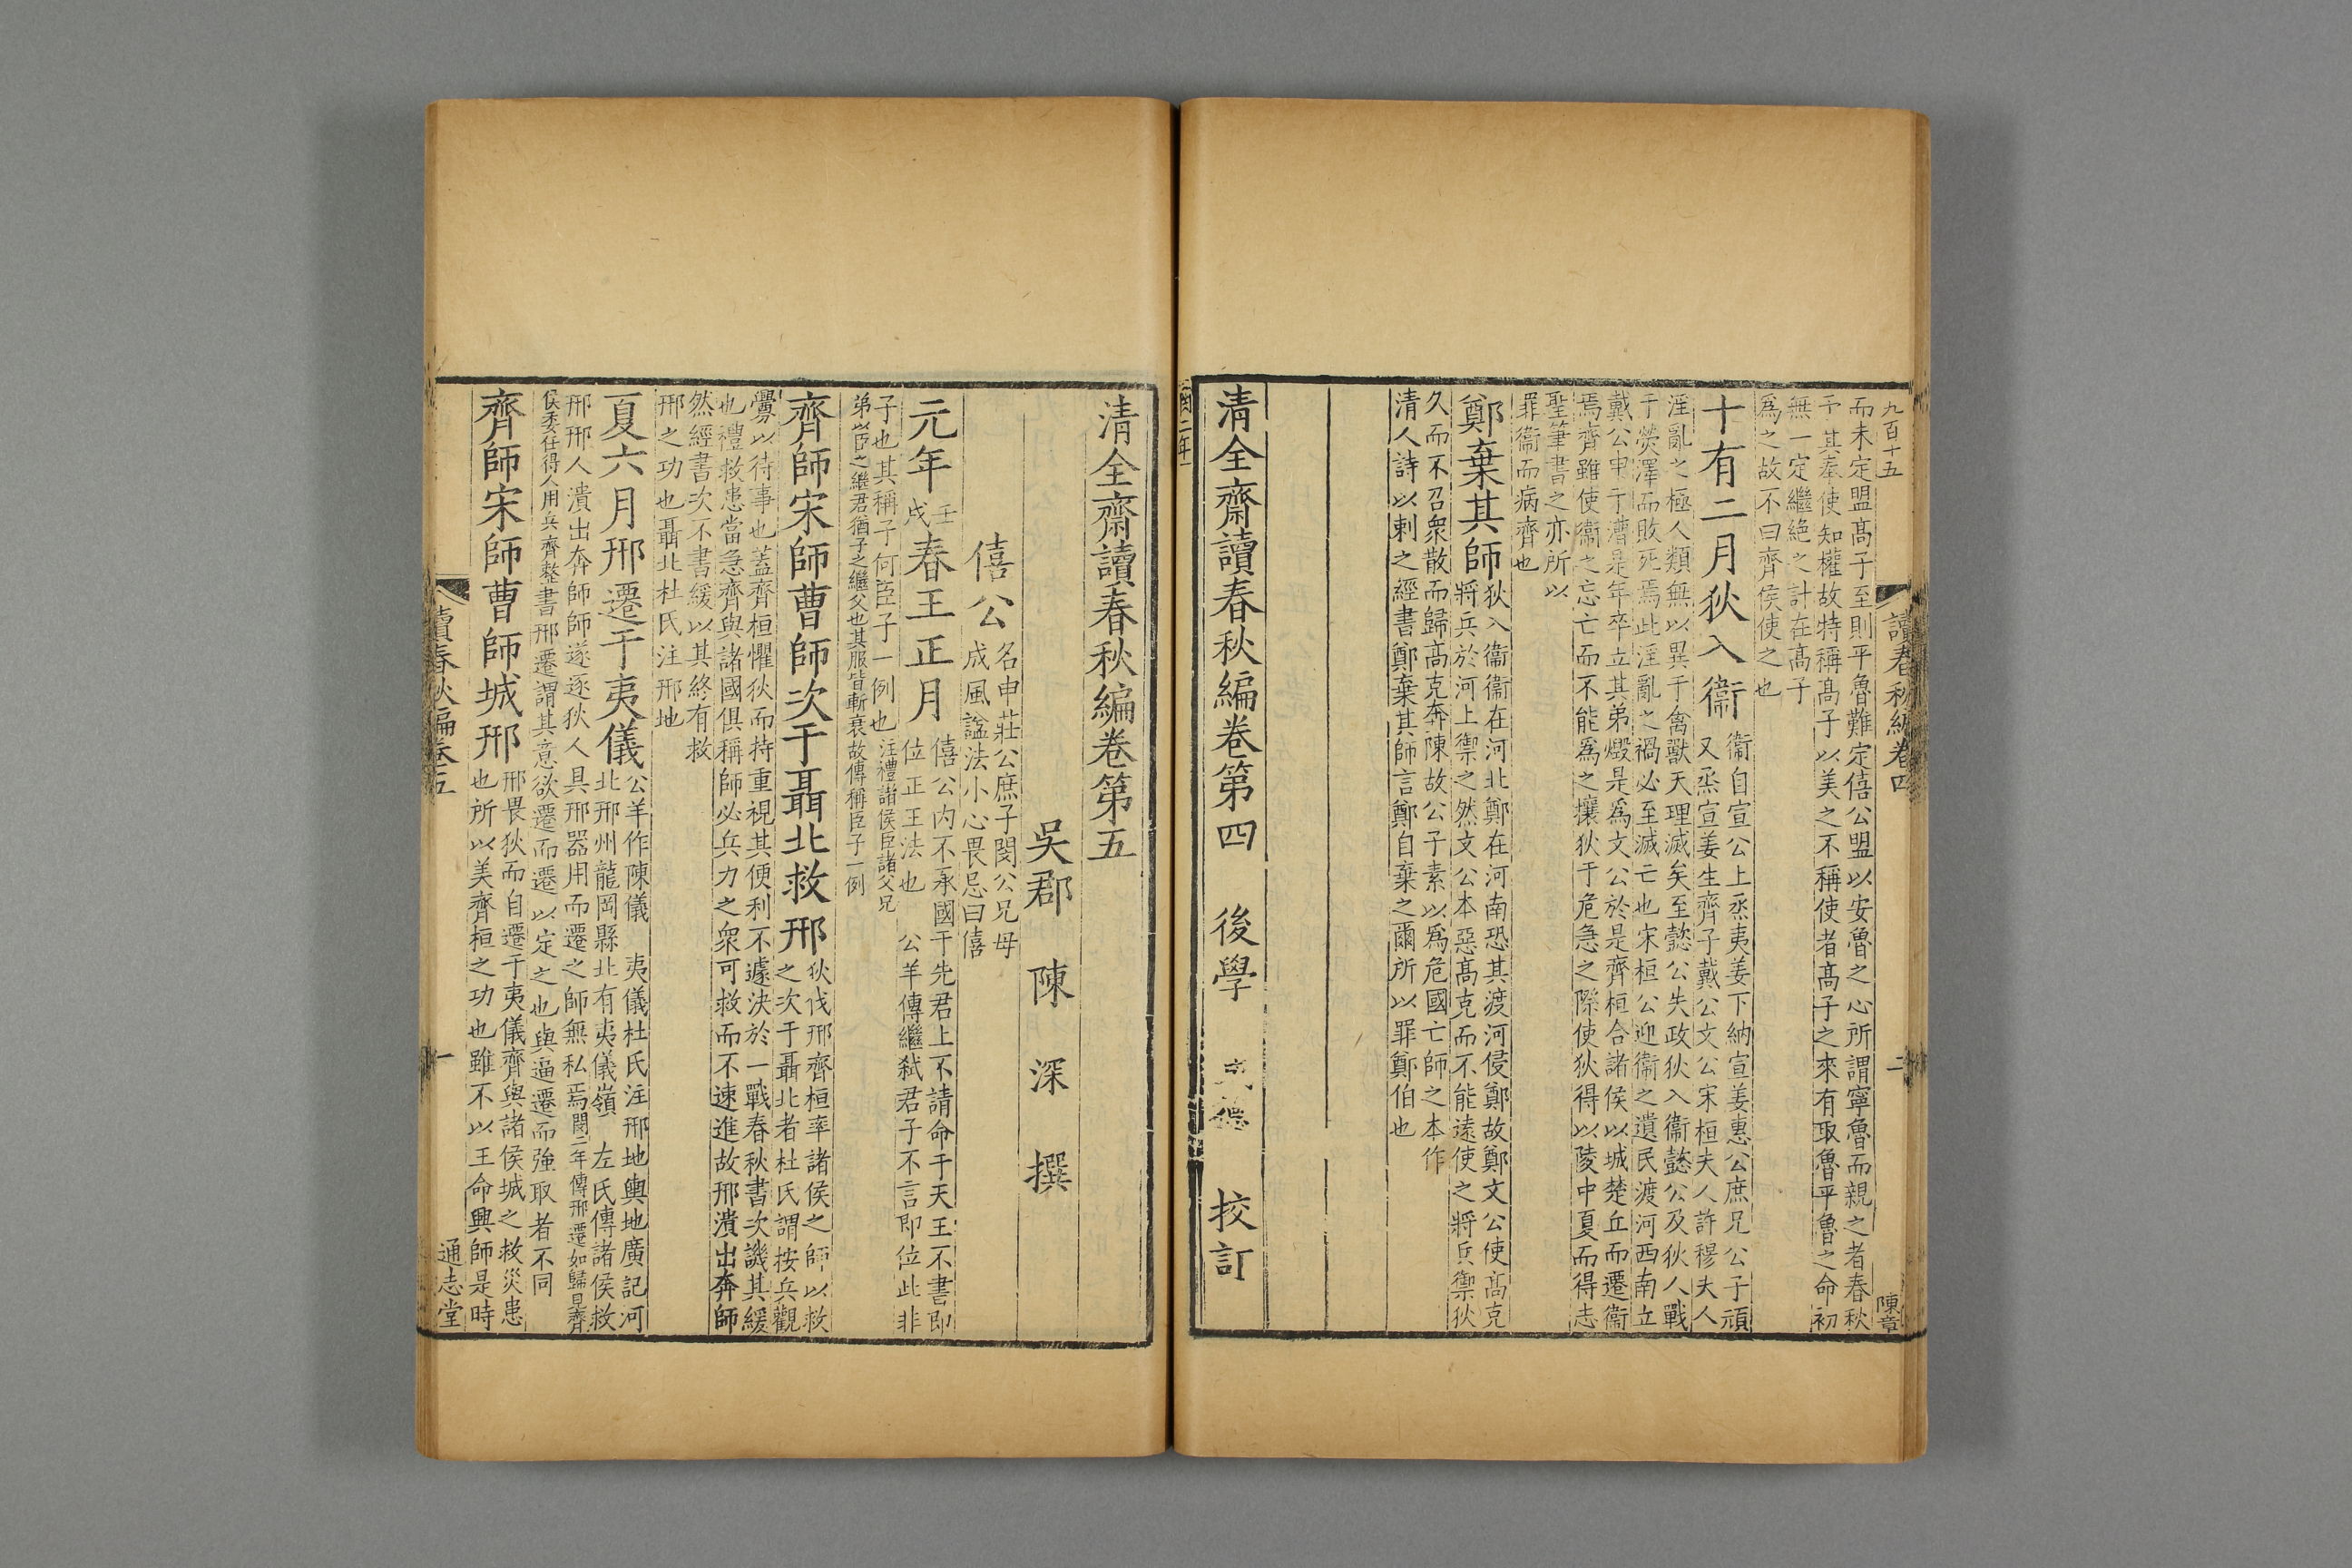 九百十五
讀春秋編卷四
二
陳章
而未定盟髙子至則平魯難定僖公盟以安魯之心所謂寧魯而親之者春秋
予其奉使知權故特稱髙子以美之不稱使者髙子之來有取魯平魯之命初
無一定繼絶之計在髙子
爲之故不曰齊侯使之也
十有二月狄入衞
衞自宣公上烝夷姜下納宣姜惠公庶兄公子頑
又烝宣姜生齊子戴公文公宋桓夫人許穆夫人
淫亂之極人類無以異于禽獸天理滅矣至懿公失政狄入衞懿公及狄人戰
于熒澤而敗死焉此淫亂之禍必至滅亡也宋桓公迎衞之遺民渡河西南立
戴公申于漕是年卒立其弟燬是爲文公於是齊桓合諸侯以城楚丘而遷衞
焉齊雖使衞之忘亡而不能爲之攘狄于危急之際使狄得以陵中夏而得志
聖筆書之亦所以
罪衞而病齊也
鄭棄其師
狄入衞衞在河北鄭在河南恐其渡河侵鄭故鄭文公使髙克
將兵於河上禦之然文公本惡髙克而不能逺使之將兵禦狄
久而不召衆散而歸髙克奔陳故公子素以爲危國亡師之本作
清人詩以刺之經書鄭棄其師言鄭自棄之爾所以罪鄭伯也
清全齋讀春秋編卷第四
後學
成德
校訂
閔二年
清全齋讀春秋編卷第五
吳郡 陳 深 撰
僖公
名申莊公庶子閔公兄母
成風諡法小心畏忌曰僖
元年
壬
戌
春王正月
僖公内不承國于先君上不請命于天王不書即
位正王法也 公羊傳繼弑君子不言即位此非
子也其稱子何臣子一例也
注禮諸侯臣諸父兄
弟以臣之繼君猶子之繼父也其服皆斬衰故傳稱臣子一例
齊師宋師曹師次于聶北救邢
狄伐邢齊桓率諸侯之師以救
之次于聶北者杜氏謂按兵觀
釁以待事也蓋齊桓懼狄而持重視其便利不遽決於一戰春秋書次譏其緩
也禮救患當急齊與諸國俱稱師必兵力之衆可救而不速進故邢潰出奔師
然經書次不書緩以其終有救
邢之功也聶北杜氏注邢地
夏六月邢遷于夷儀
公羊作陳儀 夷儀杜氏注邢地輿地廣記河
北邢州龍岡縣北有夷儀嶺 左氏傳諸侯救
邢邢人潰出奔師師遂逐狄人具邢器用而遷之師無私焉閔二年傳邢遷如歸見齊
侯委任得人用兵齊整書邢遷謂其意欲遷而遷以定之也與逼遷而強取者不同
齊師宋師曹師城邢
邢畏狄而自遷于夷儀齊與諸侯城之救災患
也所以美齊桓之功也雖不以王命興師是時
讀春秋編卷五
一
通志堂